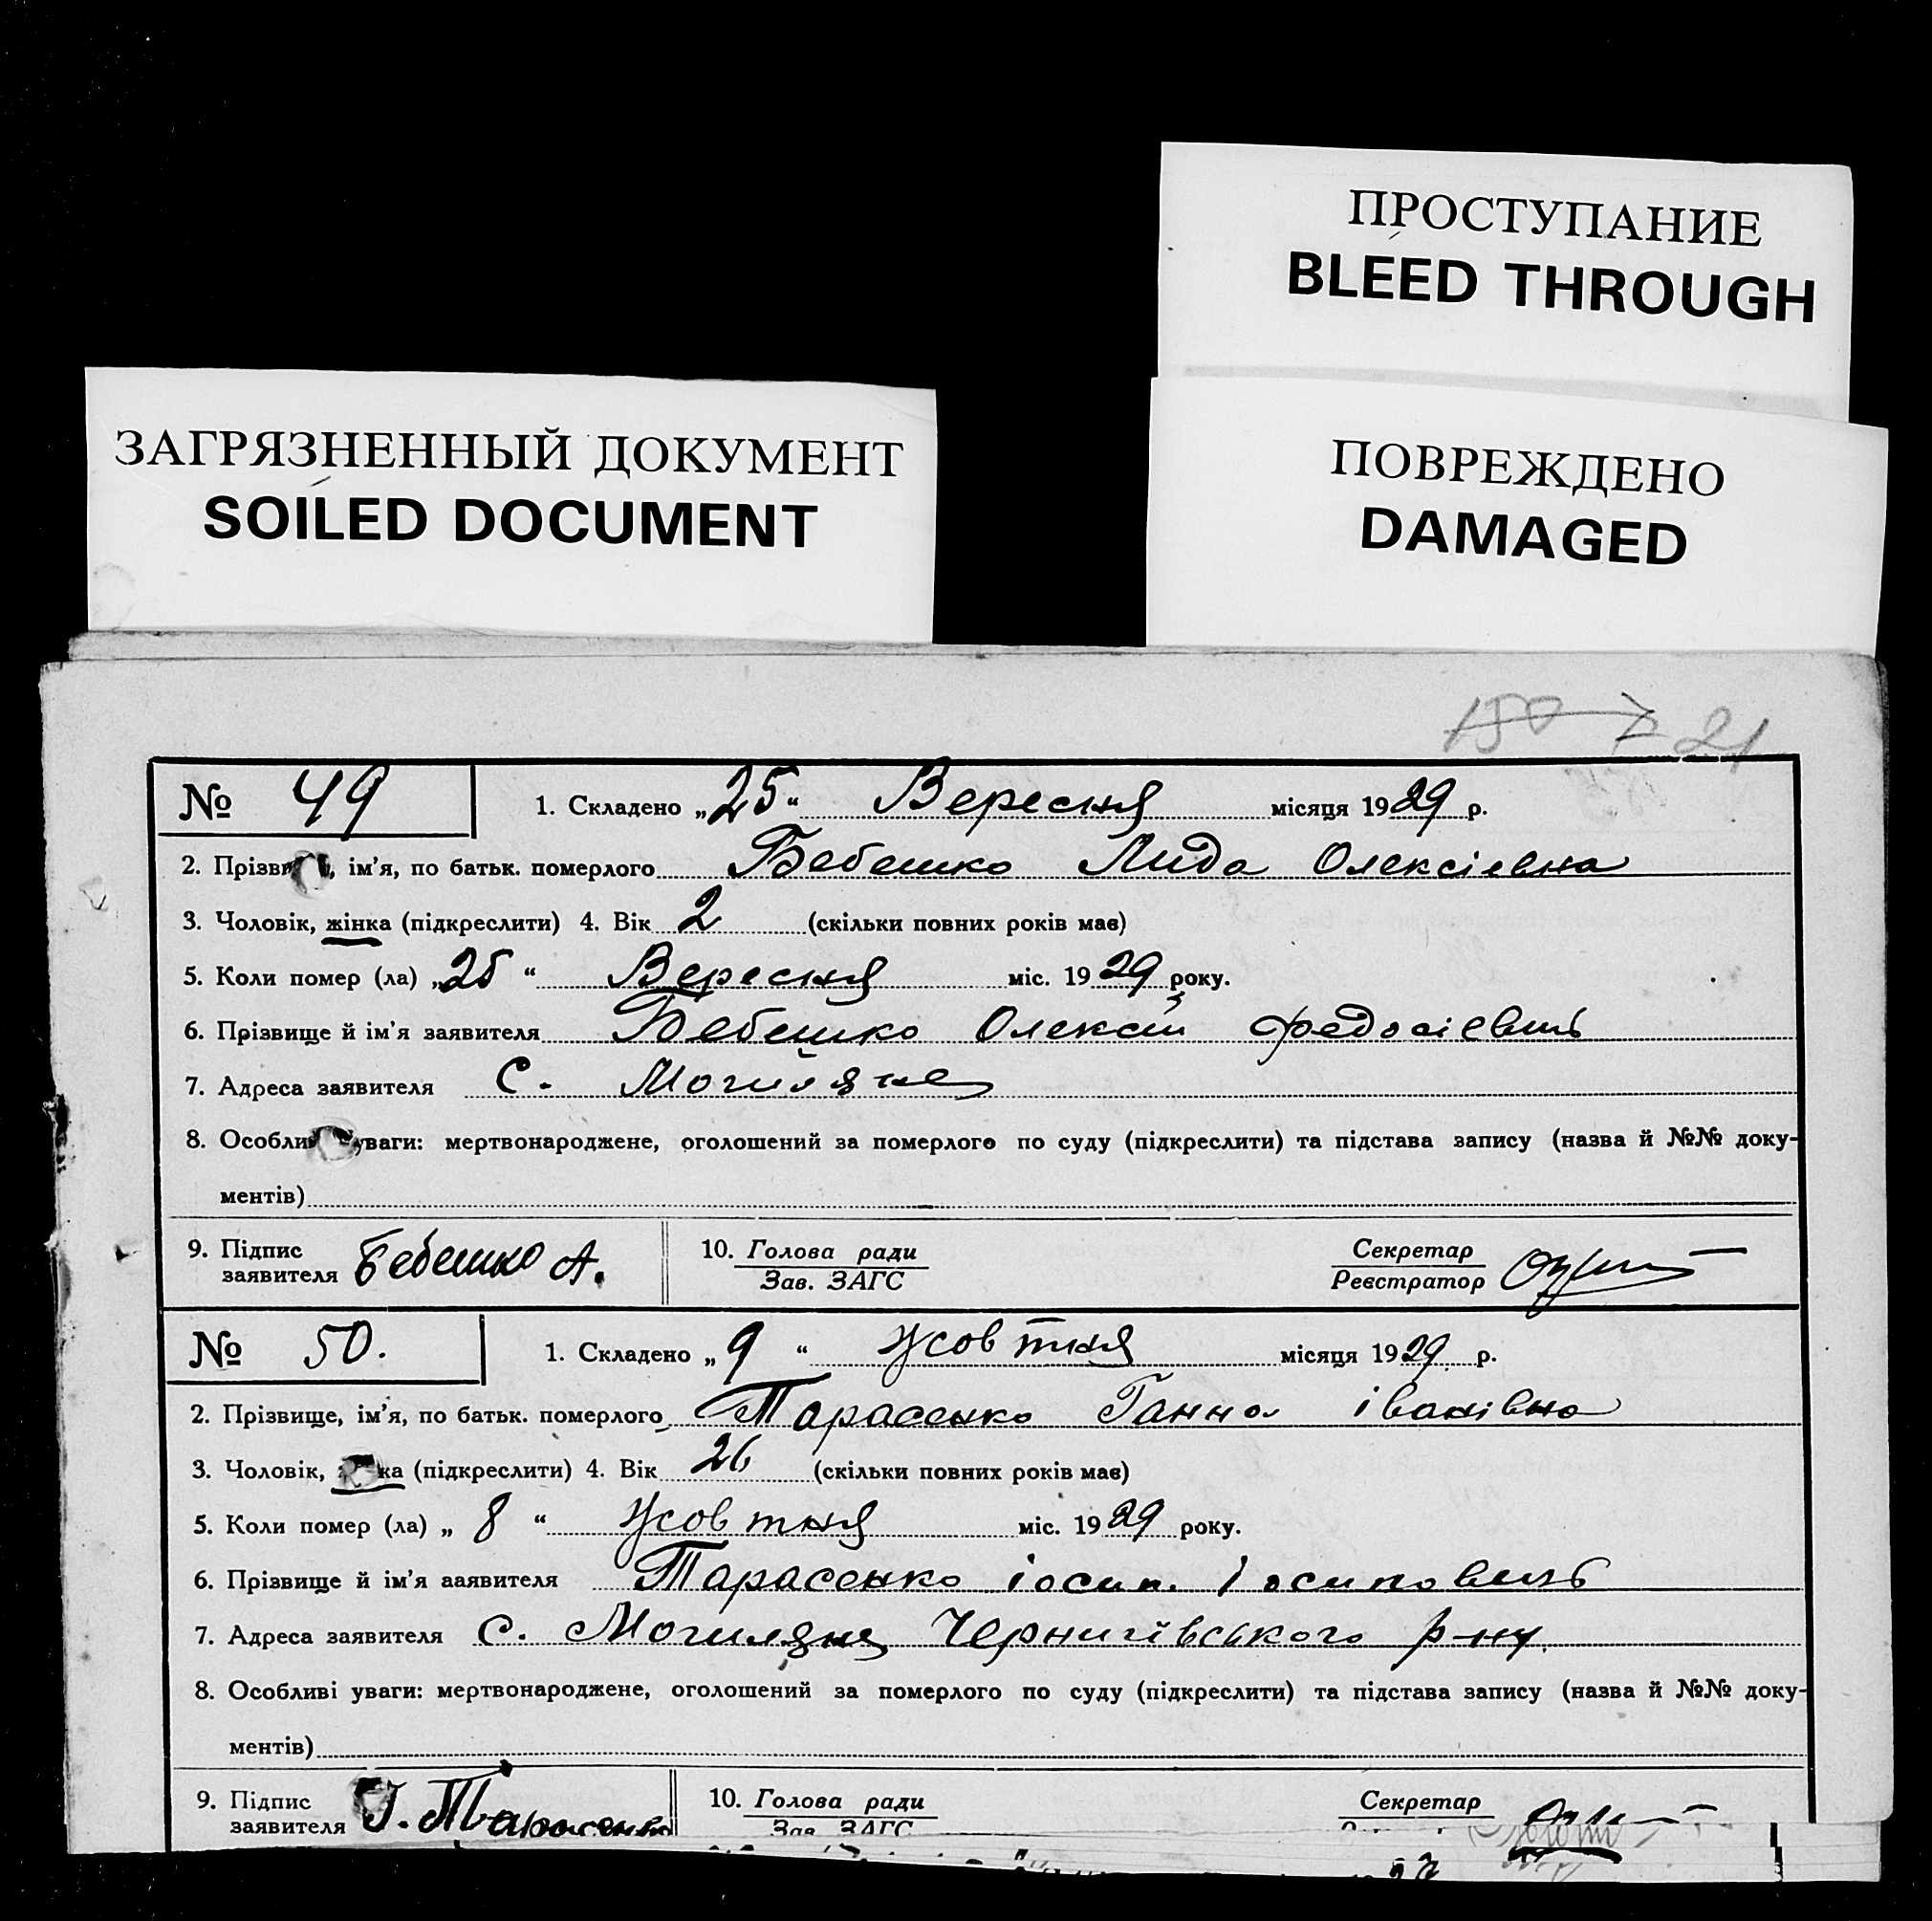 ПРОСТУПАНИЕ
BLEED THROUGH
ЗАГРЯЗНЕННЫЙ ДОКУМЕНТ
SOILED DOCUMENT
ПОВРЕЖДЕНО
DAMAGED
150 21
№ 49 1. Складено „25“ Вересня місяця 1929 р.
2. Прізви, ім'я, по батьк. померлого Бебешко Лида Олексіевна
3. Чоловік, жінка (підкреслити) 4. Вік 2 (скільки повних років має)
5. Коли помер (ла) „25“ Вересня міс. 1929 року.
6. Прізвище й ім'я заявителя Бебешко Олексій Федосіевич
7. Адреса заявителя С. Могиляне
8. Особли уваги: мертвонароджене, оголошений за померлого по суду (підкреслити) та підстава запису (назва й №№ доку-
ментів)
9. Підпис заявителя Бебешко А. 10. Голова ради Секретар
Зав. ЗАГС Реєстратор
№ 50. 1. Складено „9“ Жовтня місяця 1929 р.
2. Прізвище, ім'я, по батьк. померлого Тарасенко Ганна іванівна
3. Чоловік, ка (підкреслити) 4. Вік 26 (скільки повних років має)
5. Коли помер (ла) „8“ Жовтня міс. 1929 року.
6. Прізвище й ім'я ааявителя Тарасенко іосип. Іосипович
7. Адреса заявителя с. Могиляне Чернигівського р-ну.
8. Особливі уваги: мертвонароджене, оголошений за померлого по суду (підкреслити) та підстава запису (назва й №№ доку-
ментів)
9. Підпис заявителя І. Тарасенко 10. Голова ради Секретар
Зав. ЗАГС